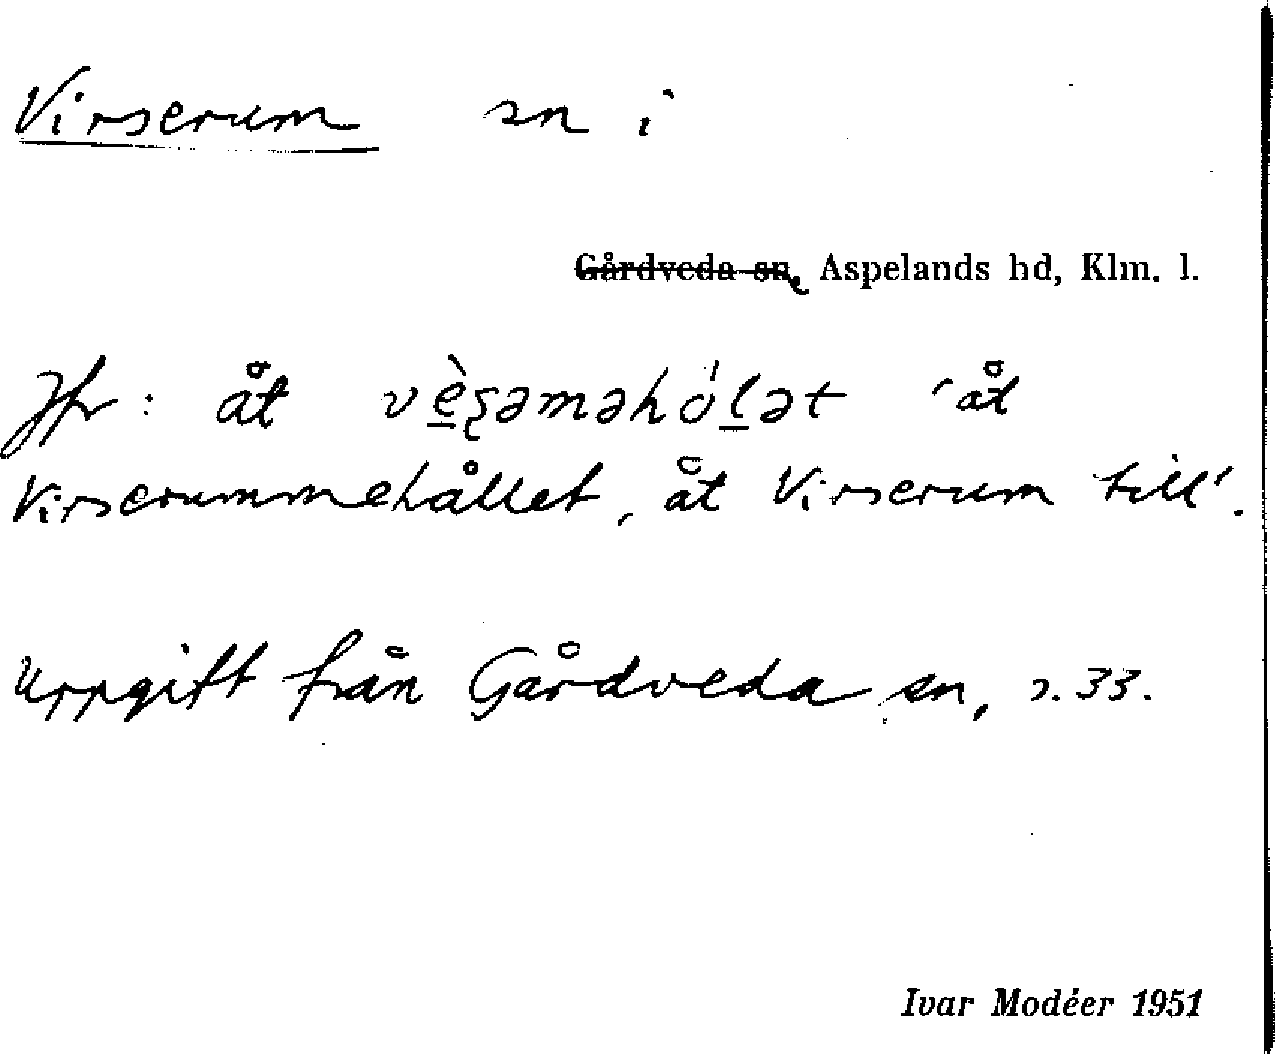 Virserum sn i
Gårdveda sn, Aspelands hd, Klm. l.
Jfr: åt vèʂəməhólət 'åt
Virserummehållet, åt Virserum till'.
Uppgift från Gårdveda sn, s. 33.
Ivar Modéer 1951